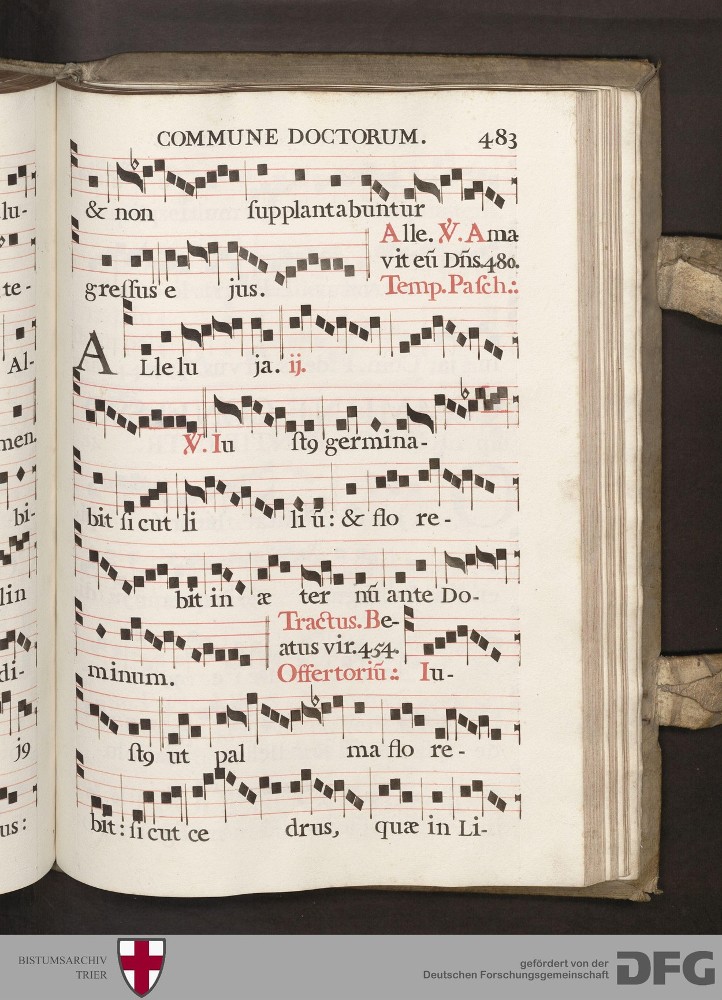 COMMUNE DOCTORUM. 483
& non supplantabuntur
Alle. ℣. Ama
vit eũ Dñs.480.
gressus e jus. Temp. Pasch.:.
ALlelu ja. ij.
℣. Iu stꝯ germina-
bit sicut li li ũ: & flo re-
bit in æ ter nũ ante Do-
Tractus. Be-
atus vir.454.
minum. Offertoriũ:. Iu-
stꝯ ut pal ma flo re-
bit: sicut ce drus, quæ in Li-
lu-
te-
Al-
men.
bi-
lin
di-
jꝯ
us:
BISTUMSARCHIV
TRIER
gefördert von der
Deutschen Forschungsgemeinschaft
DFG